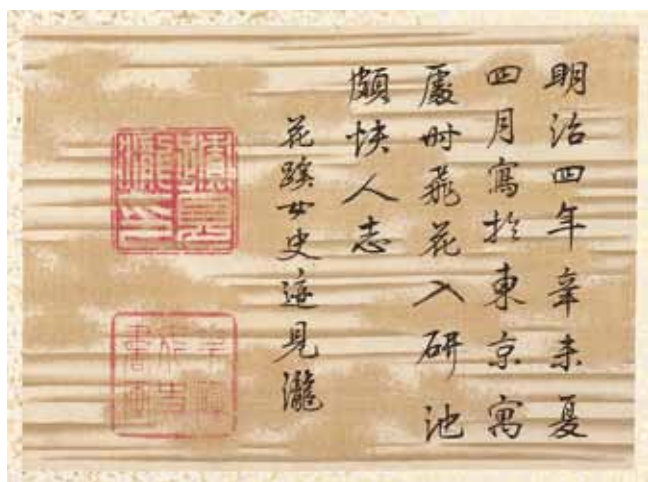 明治四年辛未夏
四月寫於東京寓
處时飛花入研池
頗快人志
花蹊女史迹見瀧
迹見瀧印